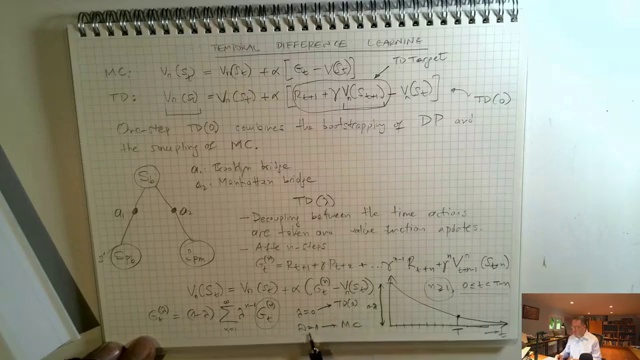 TEMPORAL DIFFERENCE LEARNING
MC: Vn(St) = Vn(St) + α [Gt - V(St)]
TD Target
TD: Vn(St) = Vn(St) + α [Rt+1 + γ Vn(St+1) - Vn(St)] TD(0)
One-step TD(0) combines the bootstrapping of DP and
the sampling of MC.
a1: Brooklyn bridge
a2: Manhattan bridge
St
a1 a2
s'
TD(λ)
- Decoupling between the time actions
are taken and value function updates.
- After n-steps
Gt(n) = Rt+1 + γ Rt+2 + ... γ^n-1 Rt+n + γ^n (St+n)
Vn(St) = Vn(St) + α (Gt(n) - Vn(St))
n≥1, 0≤t<T-n
Gt(λ) = (1-λ) ∑ n=1 ∞ λ^n-1 Gt(n)
λ=0 → TD(0)
λ=1 → MC
T